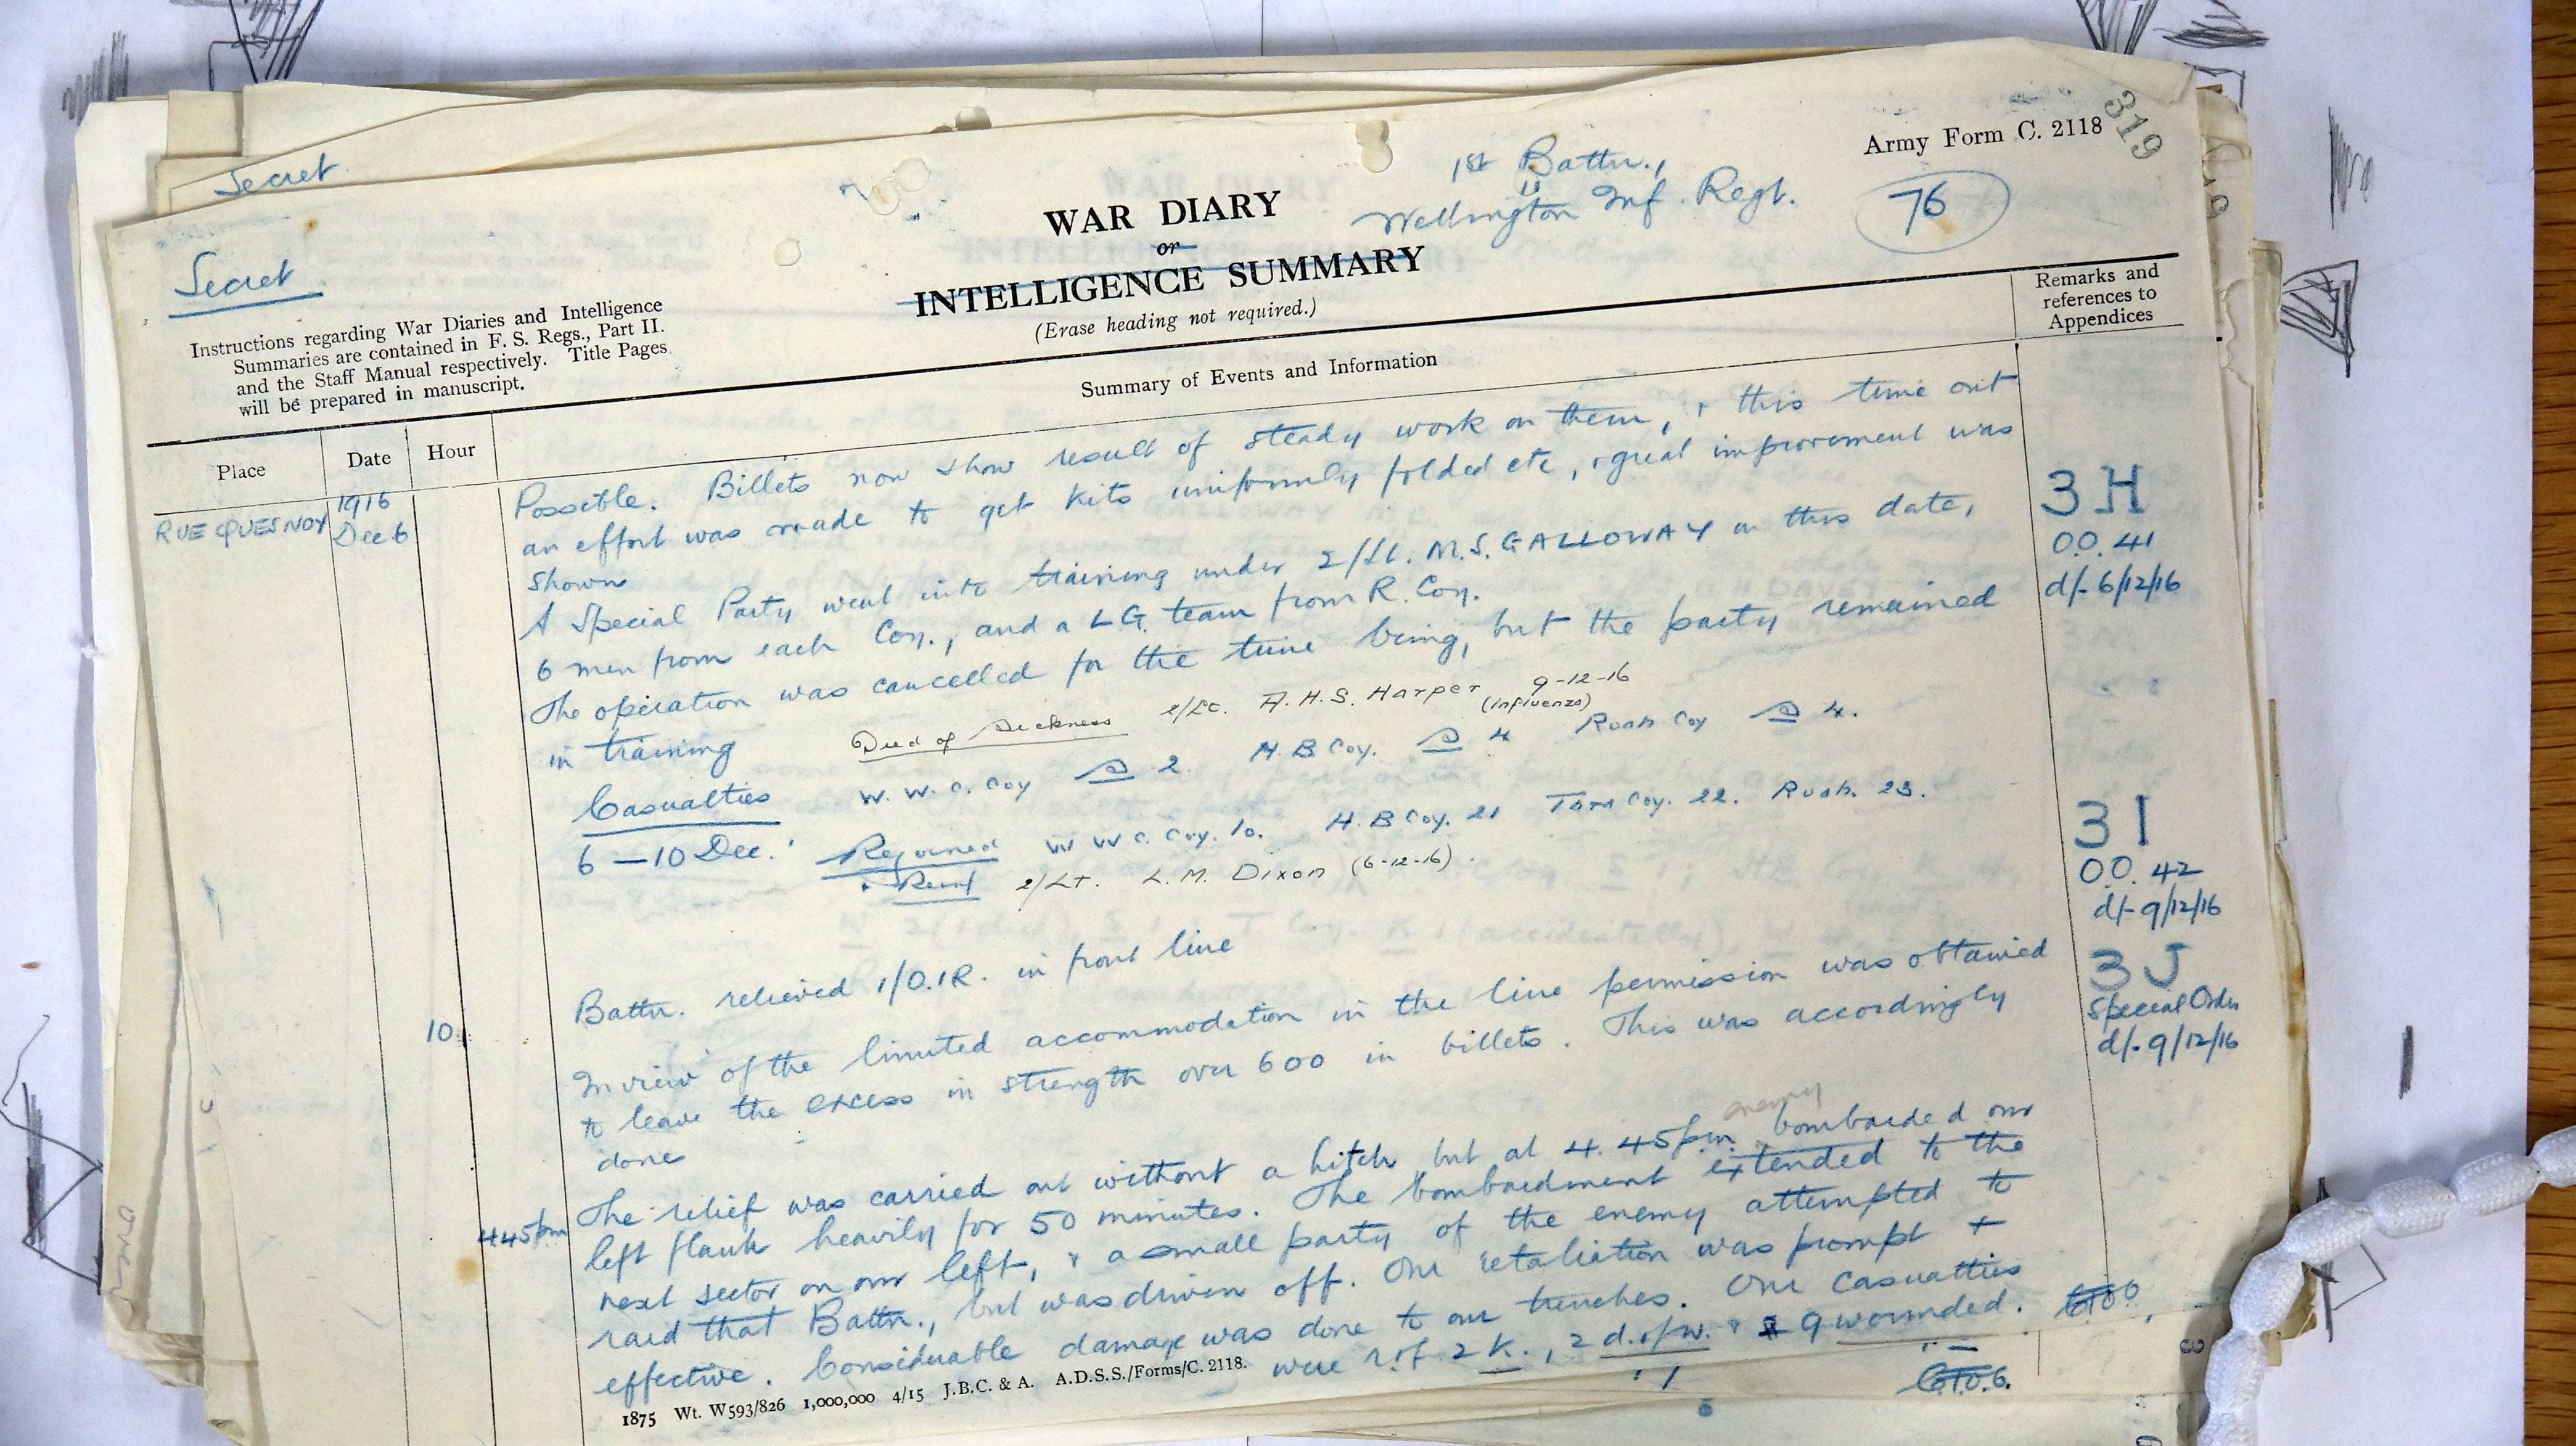 Secret
319
Army Form C. 2118
1st Battn.,
Wellington Inf. Regt.
76
WAR DIARY
or
INTELLIGENCE SUMMARY
(Erase heading not required.)
Secret
Instructions regarding War Diaries and Intelligence
Summaries are contained in F. S. Regs., Part II.
and the Staff Manual respectively. Title Pages
will be prepared in manuscript.
Remarks and
references to
Appendices
Summary of Events and Information
Place
Date
Hour
RUE QUESNOY
1916
Dec 6
Possible. Billets now show result of steady work on them, & this time out
an effort was made to get kits uniformly folded etc, & great improvement was
shown
A Special Party went into training under 2/Lt. M.S. GALLOWAY on this date,
6 men from each Coy., and a L.G. team from R. Coy.
The operation was cancelled for the time being, but the party remained
in training
3H
O.O. 41
d/- 6/12/16
Died of Sickness 2/Lt. A.H.S. Harper 9-12-16
(Influenza)
Casualties
6 – 10 Dec.
W. W. C. Coy 2. H. B Coy. 4 Ruah Coy 4.
Rejoined W W C. Coy. 10. H. B Coy. 21 Tara Coy. 22. Ruah. 23.
& Reinf 2/Lt. L. M. Dixon (6-12-16).
3I
O.O. 42
d/- 9/12/16
10
Battn. relieved 1/O.I.R. in front line
In view of the limited accommodation in the line permission was obtained
to leave the excess in strength over 600 in billets. This was accordingly
done
3J
Special Order
d/- 9/12/16
4.45pm
The relief was carried out without a hitch but at 4.45pm enemy bombarded our
left flank heavily for 50 minutes. The bombardment extended to the
next sector on our left, & a small party of the enemy attempted to
raid that Battn., but was driven off. Our retaliation was prompt +
effective. Considerable damage was done to our trenches. Our casualties
were r.f. 2 K., 2 d.of w. & 9 wounded.
1875 Wt. W593/826 1,000,000 4/15 J.B.C. & A. A.D.S.S./Forms/C. 2118.
over